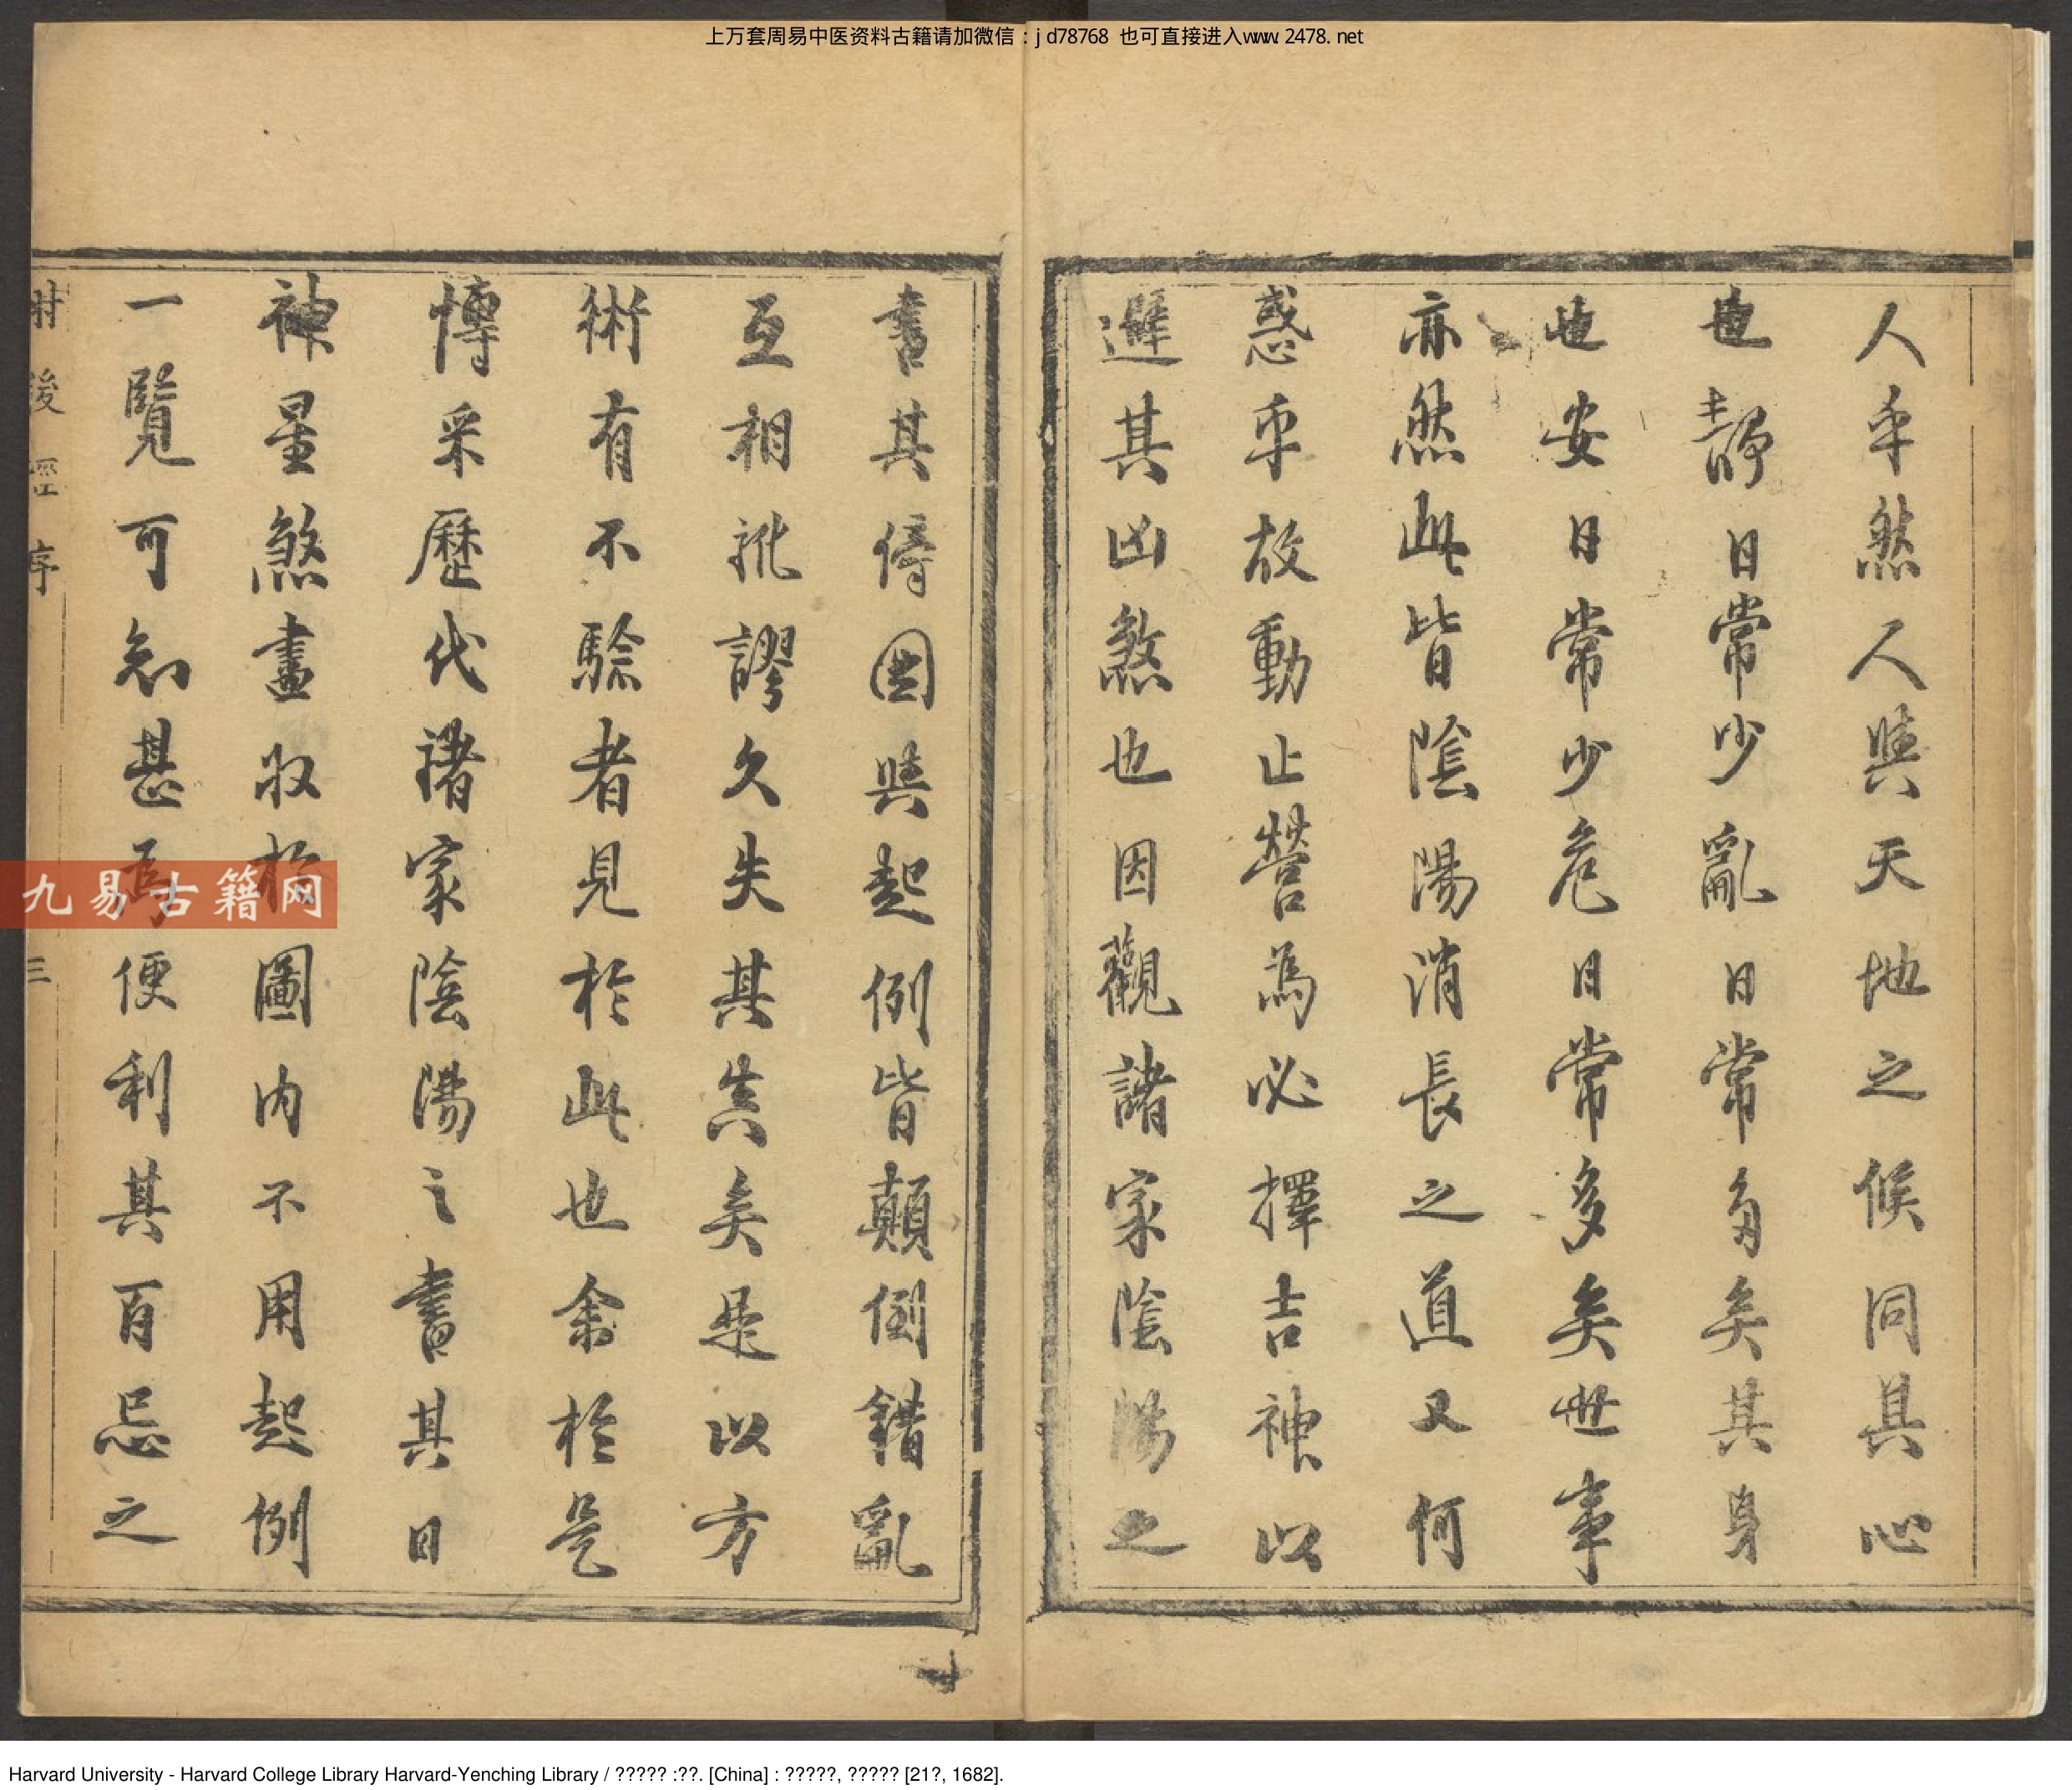 上万套周易中医资料古籍请加微信：jd78768 也可直接进入www.2478.net
人乎然人與天地之候同具心
也靜日常少亂日常多矣其身
也安日常少危日常多矣世事
亦然此皆陰陽消長之道又何
惑乎故動止營為必擇吉神以
避其凶煞也因觀諸家陰陽之
書其傳圖與起例皆顛倒錯亂
互相訛謬久失其真矣是以方
術有不驗者見於此也余於是
博采歷代諸家陰陽之書其日
神星煞盡收於圖內不用起例
一覽可知甚為便利其百忌之
肘後經序
三
九易古籍网
Harvard University - Harvard College Library Harvard-Yenching Library / ????? :??. [China] : ?????, ????? [21?, 1682].